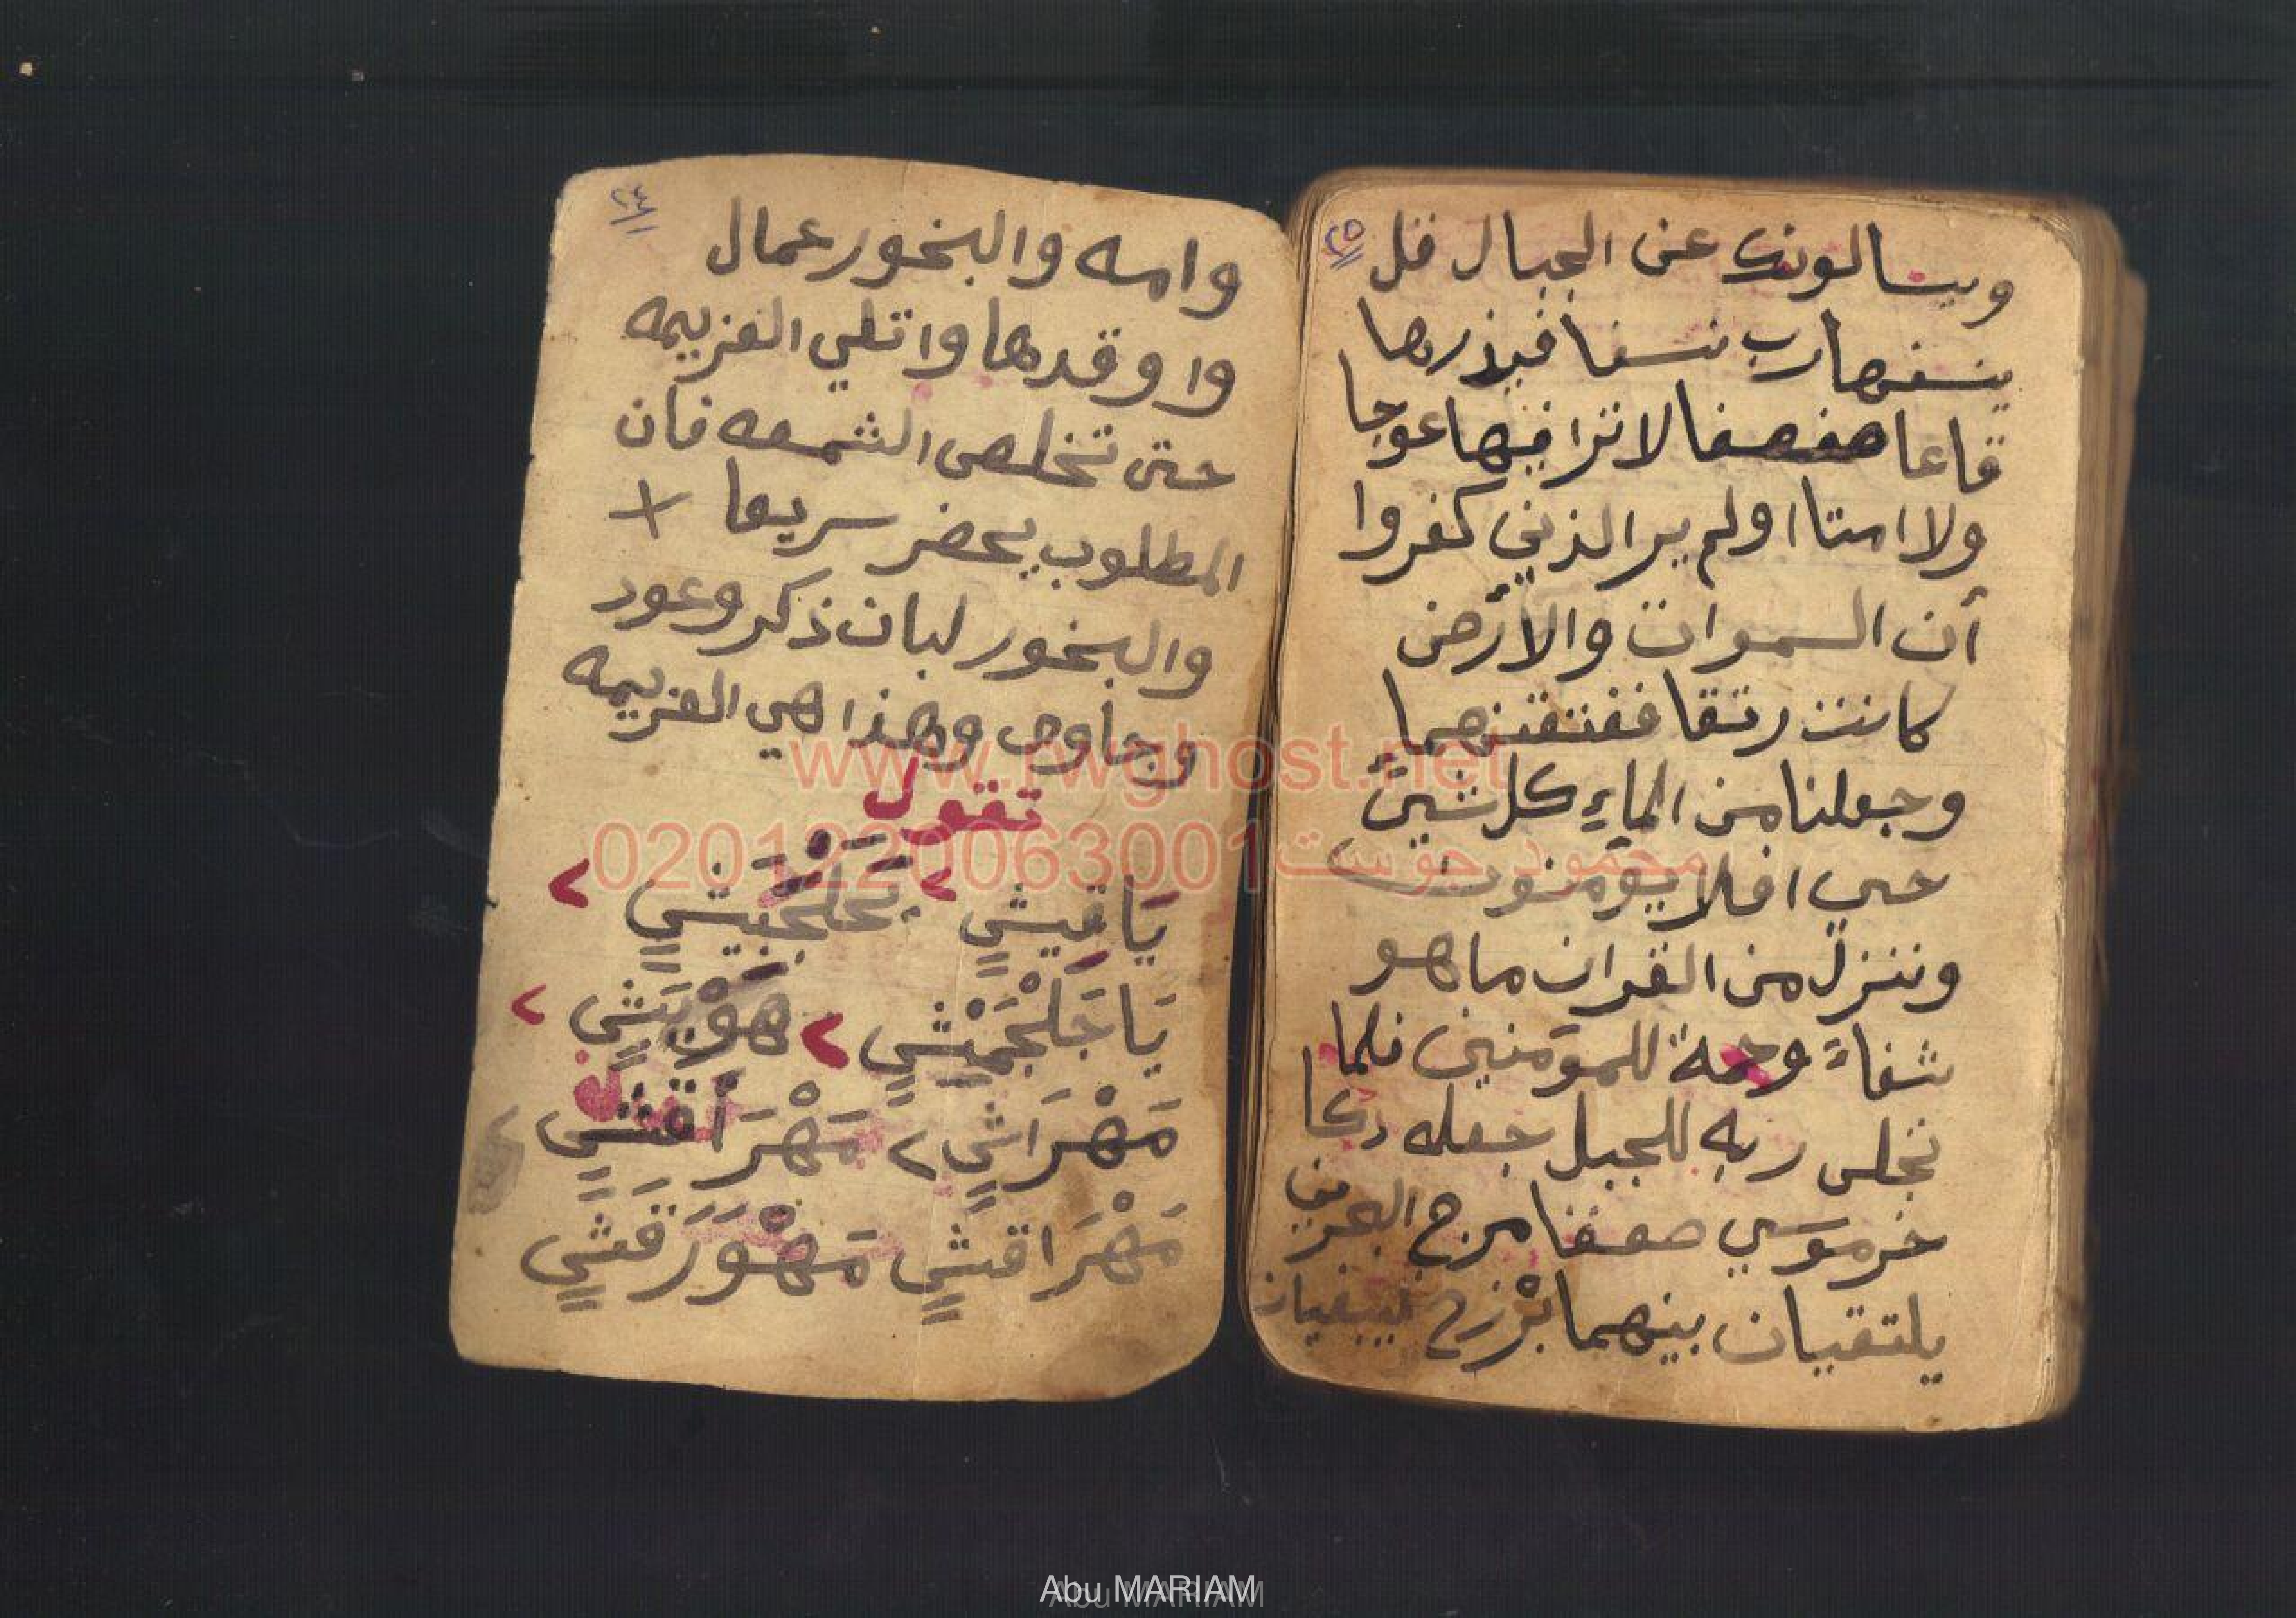 ٢٥
ويسالونك عن الجبال قل
ينسفها رب نسفا فيذرها
قاعا صفصفا لا ترا فيها عوجا
ولا امتا اولم ير الذين كفروا
أن السموات والأرض
كانت رتقا ففتقنهما
وجعلنا من الماءِ كل شيئ
حي افلا يؤمنون
وننزل من القران ما هو
شفاء ورحمة للمؤمنين فلما
تجلى ربه للجبل جعله دكا
خر موسي صعقا مرج البحرين
يلتقيان بينهما بَرْزخ لايبغيان
٢٤
وامه والبخور عمال
واوقدها واتلي العزيمه
حتى تخلص الشمعه فان
المطلوب يحضر سريعا X
والبخور لبان ذكر وعود
وجاوي وهذا هي العزيمه
تقول
يَا قِيشٍ > يَحَلْجَبِيشٍ >
يَا جَلْجَمِيْشٍ > هَوْيَشٍ >
مَهْرَاشٍ > مَهْرَأقشٍ
مَهْرَاقشٍ مَهْوَرَقَشٍ
www.rwghost.net
محمود جوست 0201220063001
Abu MARIAM